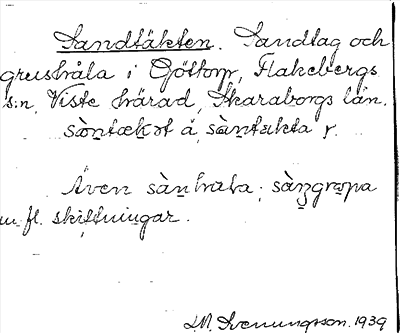 Sandtäkten. Sandtag och
grushåla i Göttorp, Flakebergs
s:n, Viste härad, Skaraborgs län.
sàntækət å sàntækta r.
Även sànhåla, sàŋgropa
m. fl. skiftningar.
L.M. Svenungsson. 1939